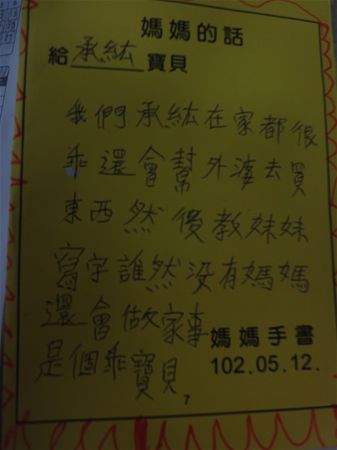 媽媽的話
給承紘寶貝
我們承紘在家都很
乖還會幫外婆去買
東西然後教妹妹
寫字誰然沒有媽媽
還會做家事
是個乖寶貝
媽媽手書
102.05.12.
7